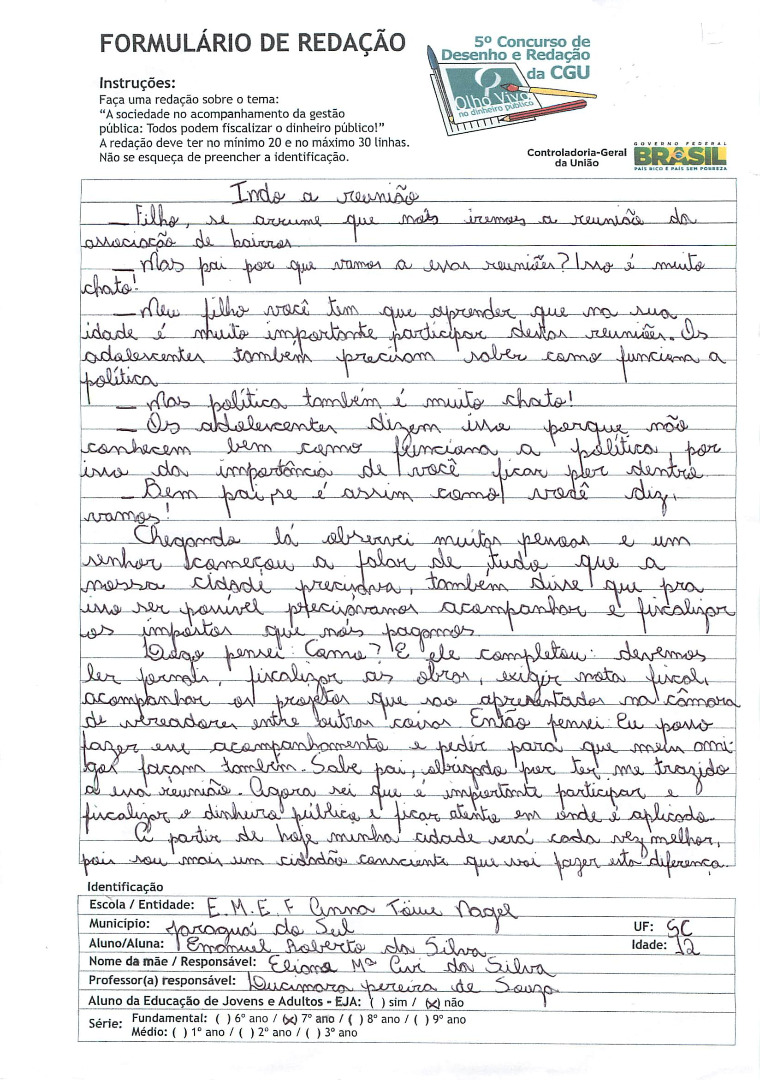 FORMULÁRIO DE REDAÇÃO
5º Concurso de
Desenho e Redação
da CGU
Olho Vivo
no dinheiro público
Instruções:
Faça uma redação sobre o tema:
“A sociedade no acompanhamento da gestão
pública: Todos podem fiscalizar o dinheiro público!”
A redação deve ter no mínimo 20 e no máximo 30 linhas.
Não se esqueça de preencher a identificação.
Controladoria-Geral
da União
GOVERNO FEDERAL
BRASIL
PAÍS RICO É PAÍS SEM POBREZA
Indo a reunião
– Filho, se arrume que nós iremos a reunião da
associação de bairros.
– Mas pai por que vamos a essas reuniões? Isso é muito
chato!
– Meu filho você tem que aprender que na sua
idade é muito importante participar destas reuniões. Os
adolescentes também precisam saber como funciona a
política
– Mas política também é muito chato!
– Os adolescentes dizem isso porque não
conhecem bem como funciona a política, por
isso da importância de você ficar por dentro.
– Bem pai, se é assim como você diz,
vamos!
Chegando lá observei muitas pessoas e um
senhor começou a falar de tudo que a
nossa cidade precisava, também disse que pra
isso ser possível precisavamos acompanhar e fiscalizar
os impostos que nós pagamos.
Logo pensei: Como? E ele completou: devemos
ler jornais, fiscalizar as obras, exigir nota fiscal,
acompanhar os projetos que sao apresentados na câmara
de vereadores entre outras coisas. Então pensei: Eu posso
fazer esse acompanhamento e pedir para que meus ami-
gos façam também. Sabe pai, obrigado por ter me trazido
a essa reunião. Agora sei que é importante participar e
fiscalizar o dinheiro público e ficar atento em onde é aplicado.
A partir de hoje minha cidade será cada vez melhor,
pois sou mais um cidadão consciente que vai fazer esta diferença.
Identificação
Escola / Entidade: E.M.E.F Anna Töwe Nagel
Município: Jaraguá do Sul UF: SC
Aluno/Aluna: Emanuel Roberto da Silva Idade: 12
Nome da mãe / Responsável: Eliane Mª Civi da Silva
Professor(a) responsável: Lucimara pereira de Souza
Aluno da Educação de Jovens e Adultos - EJA: ( ) sim / (x) não
Série: Fundamental: ( ) 6º ano / (x) 7º ano / ( ) 8º ano / ( ) 9º ano
Médio: ( ) 1º ano / ( ) 2º ano / ( ) 3º ano